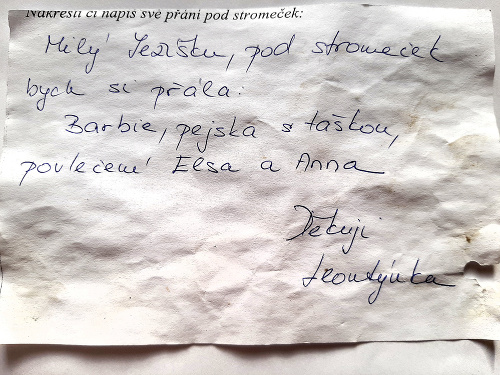 Nakresli či napiš své přání pod stromeček:
Milý Ježíšku, pod stromeček
bych si přála:
Barbie, pejska s taškou,
povlečení Elsa a Anna
Děkuji